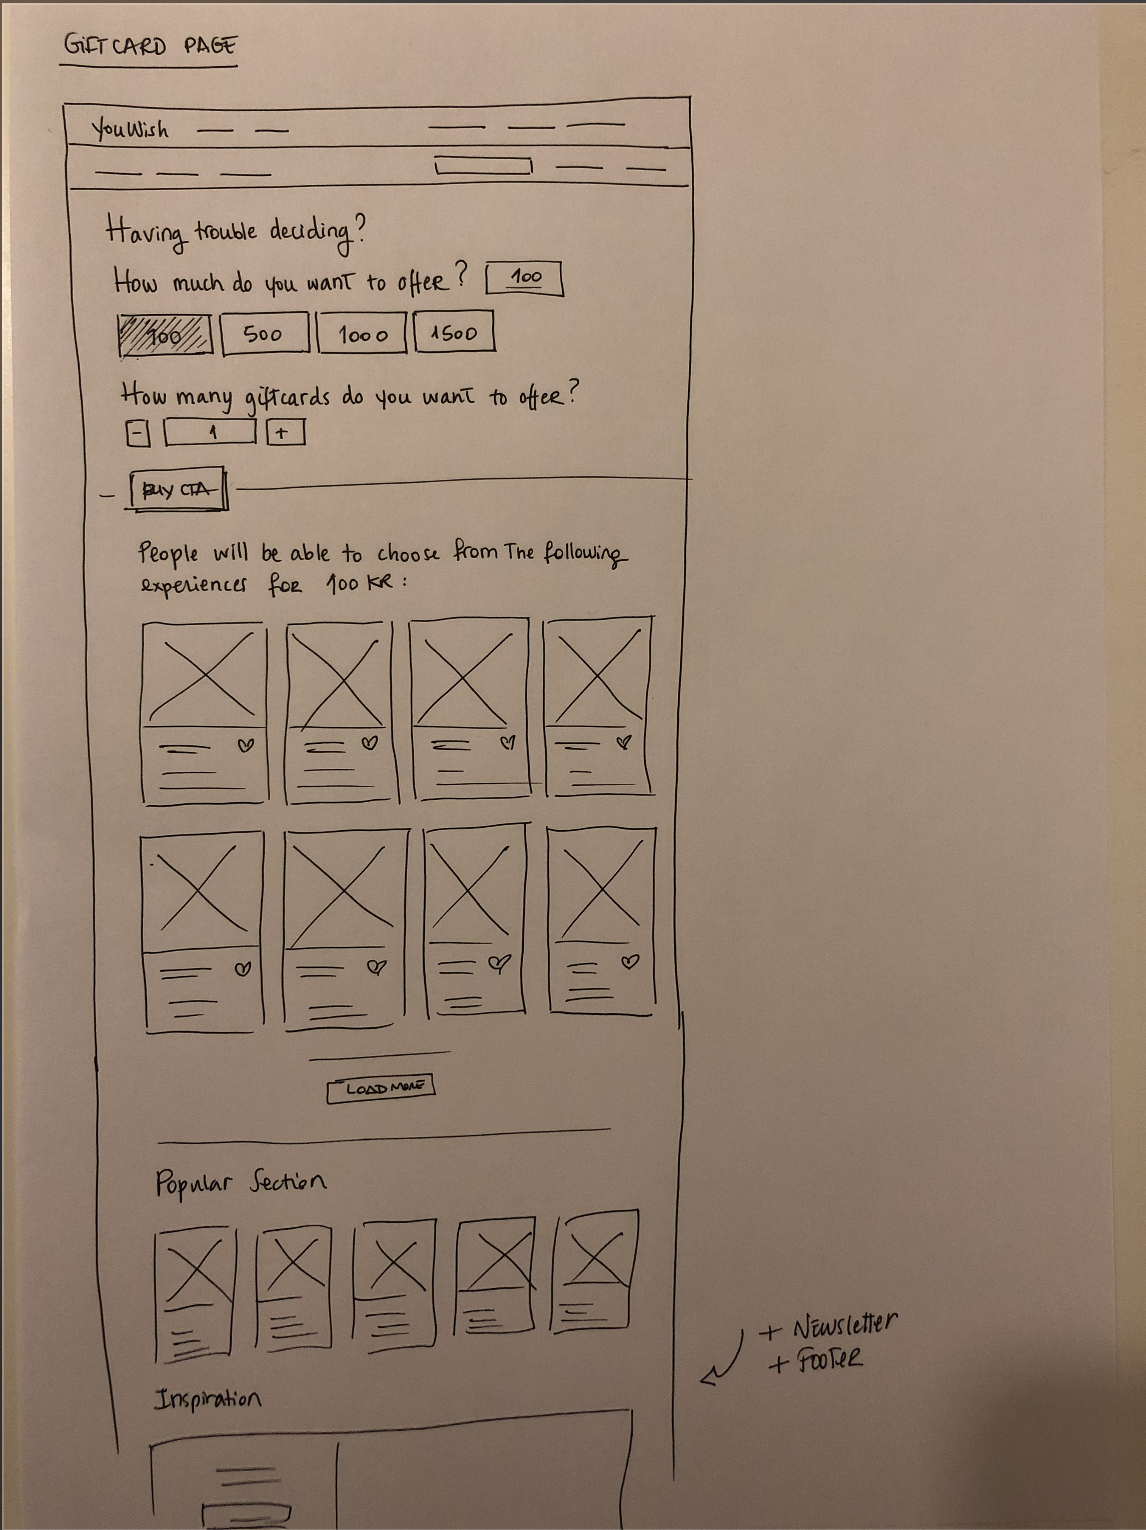 GIFTCARD PAGE
YouWish
Having trouble deciding?
How much do you want to offer? 100
100 500 1000 1500
How many giftcards do you want to offer?
- 1 +
BUY CTA
People will be able to choose from The following
experiences for 100 KR:
LOAD MORE
Popular Section
Inspiration
+ Newsletter
+ Footer